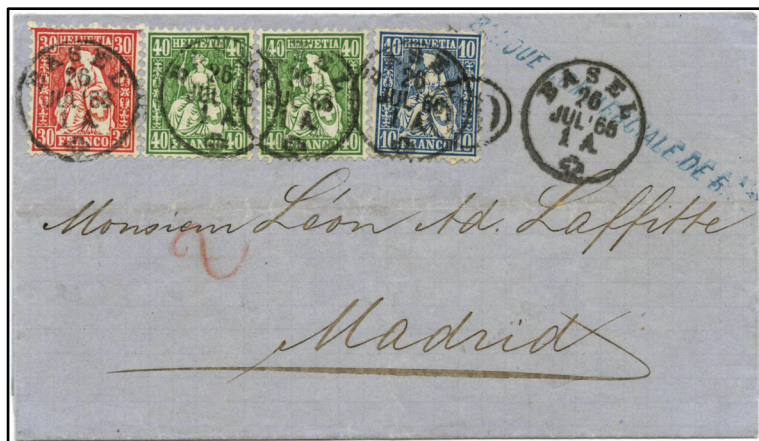 30 HELVETIA 30
30 FRANCO 30
40 HELVETIA 40
40 FRANCO 40
40 HELVETIA 40
40 FRANCO 40
10 HELVETIA 10
10 FRANCO 10
BASEL
26
JUL 66
1 A
BASEL
26
JUL '66
1 A
DE
Monsieur Léon Ad. Laffitte
2
Madrid